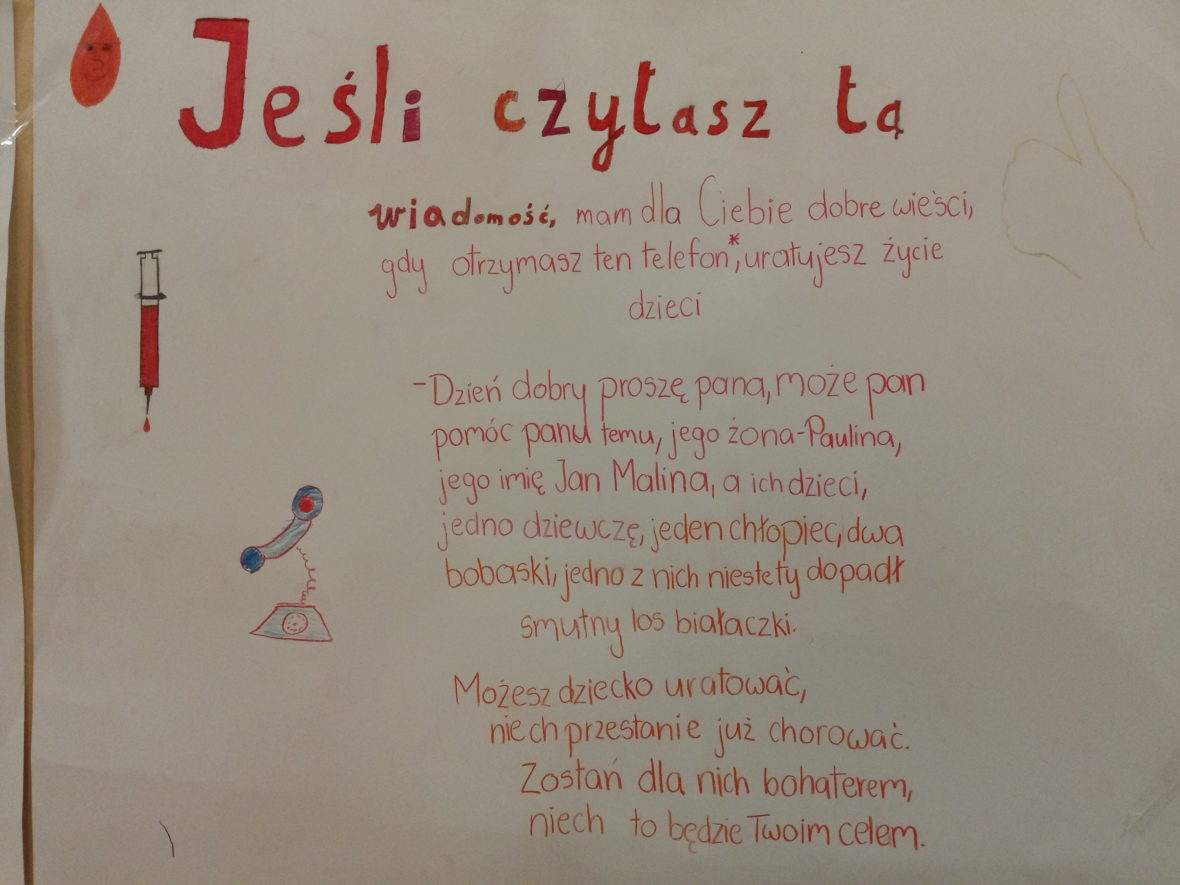 Jeśli czytasz tą
wiadomość, mam dla Ciebie dobre wieści,
gdy otrzymasz ten telefon*, uratujesz życie
dzieci
-Dzień dobry proszę pana, może pan
pomóc panu temu, jego żona-Paulina,
jego imię Jan Malina, a ich dzieci,
jedno dziewczę, jeden chłopiec, dwa
bobaski, jedno z nich niestety dopadł
smutny los białaczki.
Możesz dziecko uratować,
niech przestanie już chorować.
Zostań dla nich bohaterem,
niech to będzie Twoim celem.